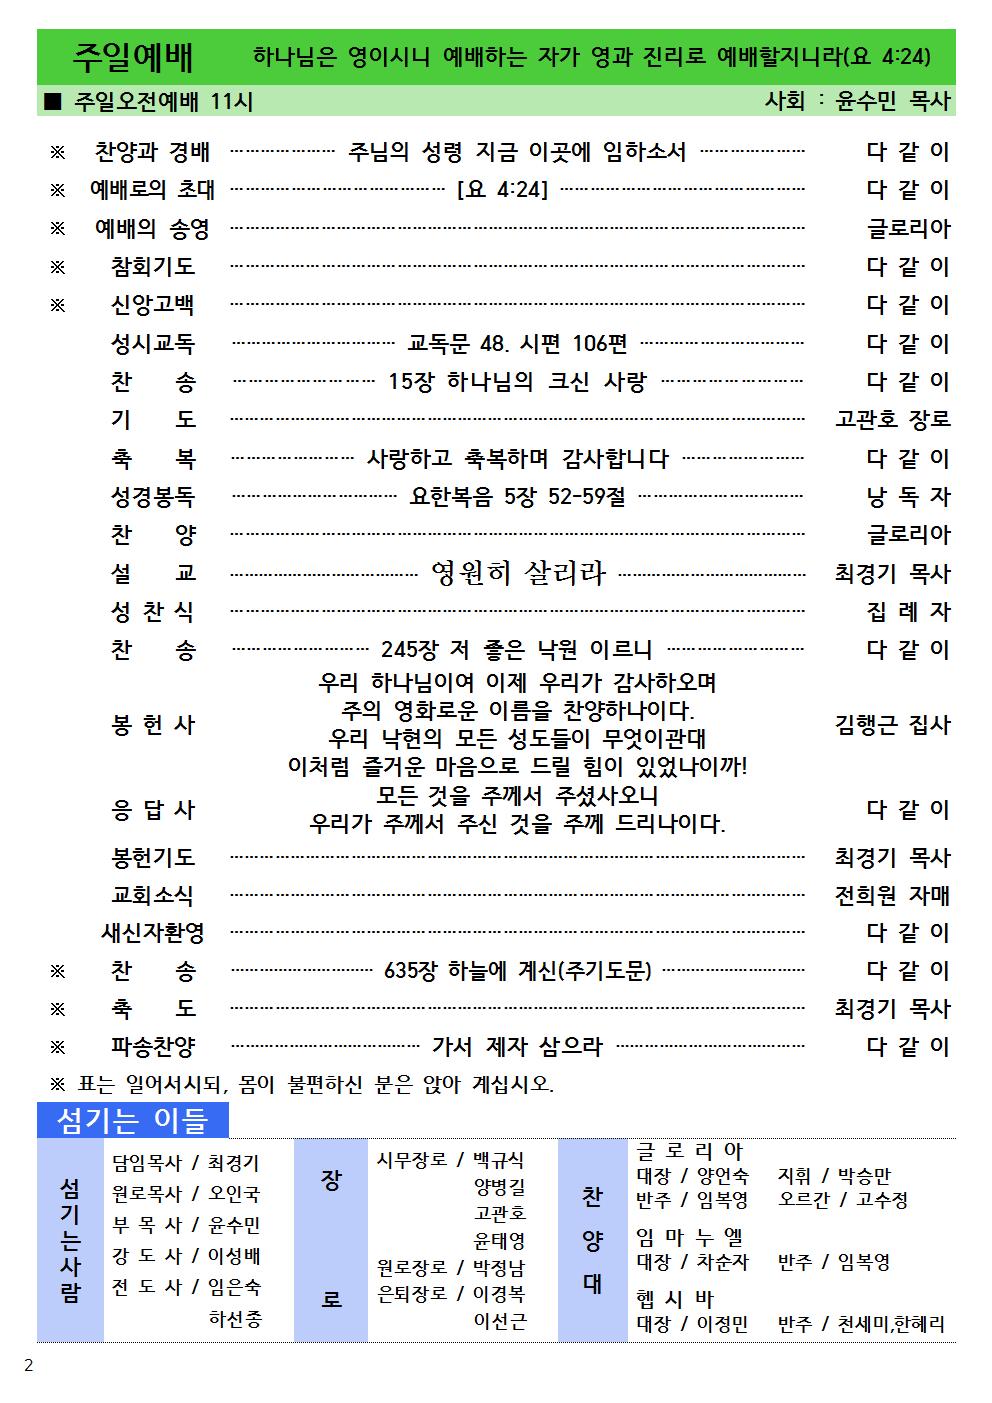 주일예배 하나님은 영이시니 예배하는 자가 영과 진리로 예배할지니라(요 4:24)
■ 주일오전예배 11시 사회 : 윤수민 목사
※ 찬양과 경배 ················ 주님의 성령 지금 이곳에 임하소서 ················ 다 같 이
※ 예배로의 초대 ················ [요 4:24] ················ 다 같 이
※ 예배의 송영 ················ 글로리아
※ 참회기도 ················ 다 같 이
※ 신앙고백 ················ 다 같 이
성시교독 ················ 교독문 48. 시편 106편 ················ 다 같 이
찬 송 ················ 15장 하나님의 크신 사랑 ················ 다 같 이
기 도 ················ 고관호 장로
축 복 ················ 사랑하고 축복하며 감사합니다 ················ 다 같 이
성경봉독 ················ 요한복음 5장 52-59절 ················ 낭 독 자
찬 양 ················ 글로리아
설 교 ················ 영원히 살리라 ················ 최경기 목사
성 찬 식 ················ 집 례 자
찬 송 ················ 245장 저 좋은 낙원 이르니 ················ 다 같 이
우리 하나님이여 이제 우리가 감사하오며
주의 영화로운 이름을 찬양하나이다.
봉 헌 사 김행근 집사
우리 낙현의 모든 성도들이 무엇이관대
이처럼 즐거운 마음으로 드릴 힘이 있었나이까!
모든 것을 주께서 주셨사오니
응 답 사 다 같 이
우리가 주께서 주신 것을 주께 드리나이다.
봉헌기도 ················ 최경기 목사
교회소식 ················ 전희원 자매
새신자환영 ················ 다 같 이
※ 찬 송 ················ 635장 하늘에 계신(주기도문) ················ 다 같 이
※ 축 도 ················ 최경기 목사
※ 파송찬양 ················ 가서 제자 삼으라 ················ 다 같 이
※ 표는 일어서시되, 몸이 불편하신 분은 앉아 계십시오.
섬기는 이들
섬기는사람
담임목사 / 최경기
원로목사 / 오인국
부 목 사 / 윤수민
강 도 사 / 이성배
전 도 사 / 임은숙
하선종
장 로
시무장로 / 백규식
양병길
고관호
윤태영
원로장로 / 박정남
은퇴장로 / 이경복
이선근
찬 양 대
글 로 리 아
대장 / 양언숙 지휘 / 박승만
반주 / 임복영 오르간 / 고수정
임 마 누 엘
대장 / 차순자 반주 / 임복영
헵 시 바
대장 / 이정민 반주 / 천세미,한혜리
2